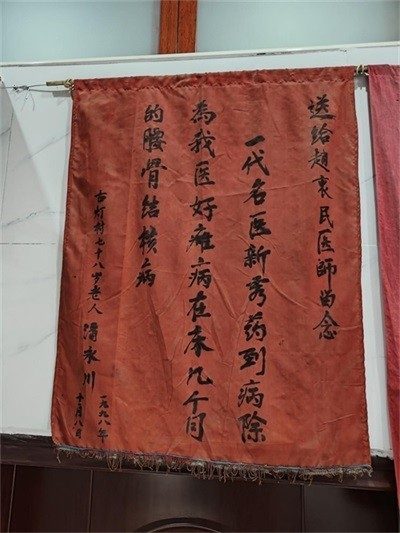 送给趙衷民医師留念
一代名医新秀药到病除
為我医好病在床几个月
的腰骨结核病
古灯村七十八岁老人 永川
一九九八年
十月八日